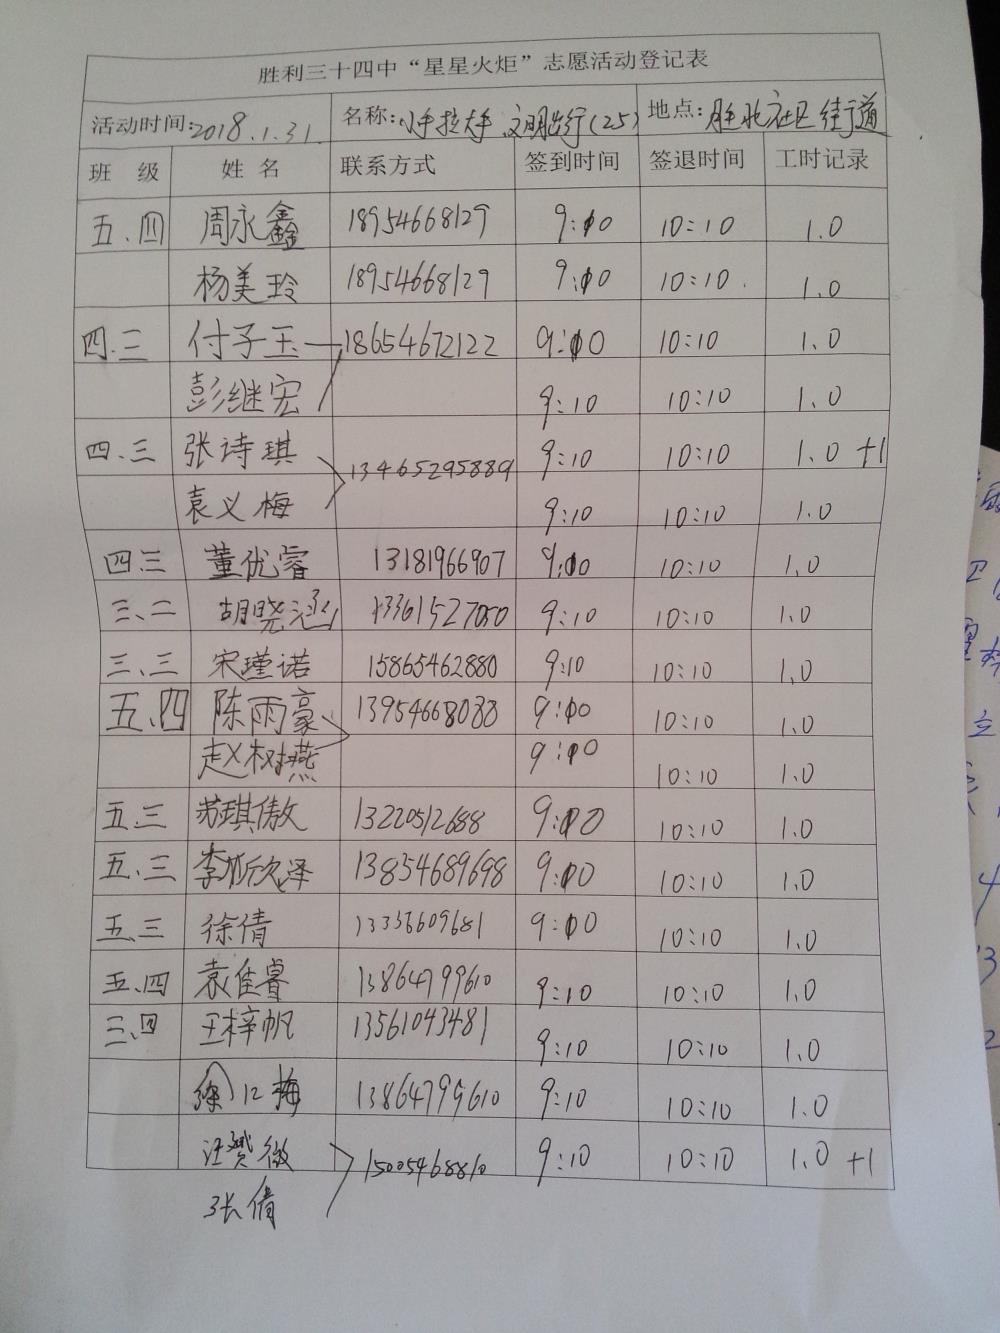 胜利三十四中“星星火炬”志愿活动登记表
活动时间:2018.1.31. 名称:小手拉大手、文明出行(25) 地点:胜北社区 街道
班 级 姓 名 联系方式 签到时间 签退时间 工时记录
五.四 周永鑫 18954668129 9:10 10:10 1.0
杨美玲 18954668129 9:10 10:10. 1.0
四.三 付子玉 18654672122 9:10 10:10 1.0
彭继宏 9:10 10:10 1.0
四.三 张诗琪 13465295889 9:10 10:10 1.0 +1
袁义梅 9:10 10:10 1.0
四.三 董优睿 13181966907 9:10 10:10 1.0
三.二 胡晓涵 13361527050 9:10 10:10 1.0
三.三 宋瑾诺 15865462880 9:10 10:10 1.0
五.四 陈雨豪 13954668038 9:10 10:10 1.0
赵树燕 9:10 10:10 1.0
五.三 苏琪傲 13220512688 9:10 10:10 1.0
五.三 李欣泽 13854689698 9:10 10:10 1.0
五.三 徐倩 13356609681 9:10 10:10 1.0
五.四 袁佳睿 13864799610 9:10 10:10 1.0
三.四 王梓帆 13561043481 9:10 10:10 1.0
徐仁梅 13864799610 9:10 10:10 1.0
汪赞微 15005468810 9:10 10:10 1.0 +1
张倩